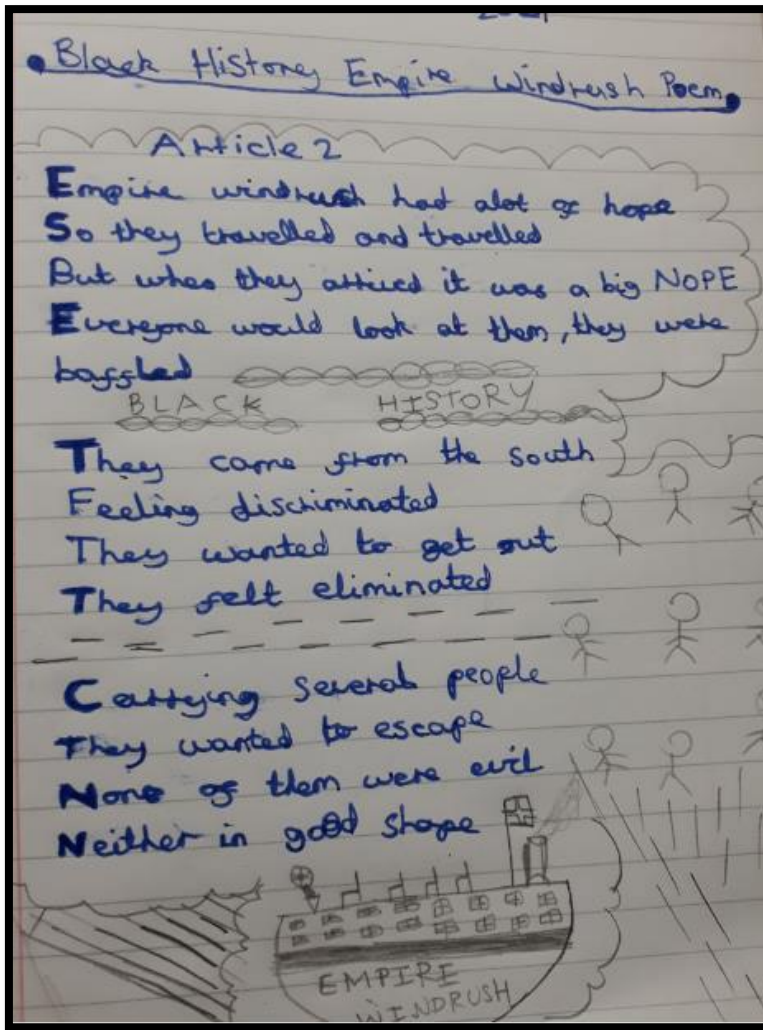 2021
Black History Empire Windrush Poem
Article 2
Empire windrush had alot of hope
So they travelled and travelled
But when they arrived it was a big NOPE
Everyone would look at them, they were
baffled
BLACK HISTORY
They came from the south
Feeling discriminated
They wanted to get out
They felt eliminated
Carrying several people
They wanted to escape
None of them were evil
Neither in good shape
EMPIRE
WINDRUSH